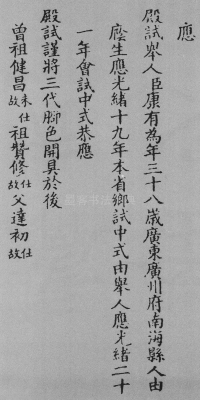 應
殿試舉人臣康有為年三十八歲廣東廣州府南海縣人由
廕生應光緒十九年本省鄉試中式由舉人應光緒二十
一年會試中式恭應
殿試謹將三代腳色開具於後
曾祖健昌未仕故祖贊修仕故父達初仕故